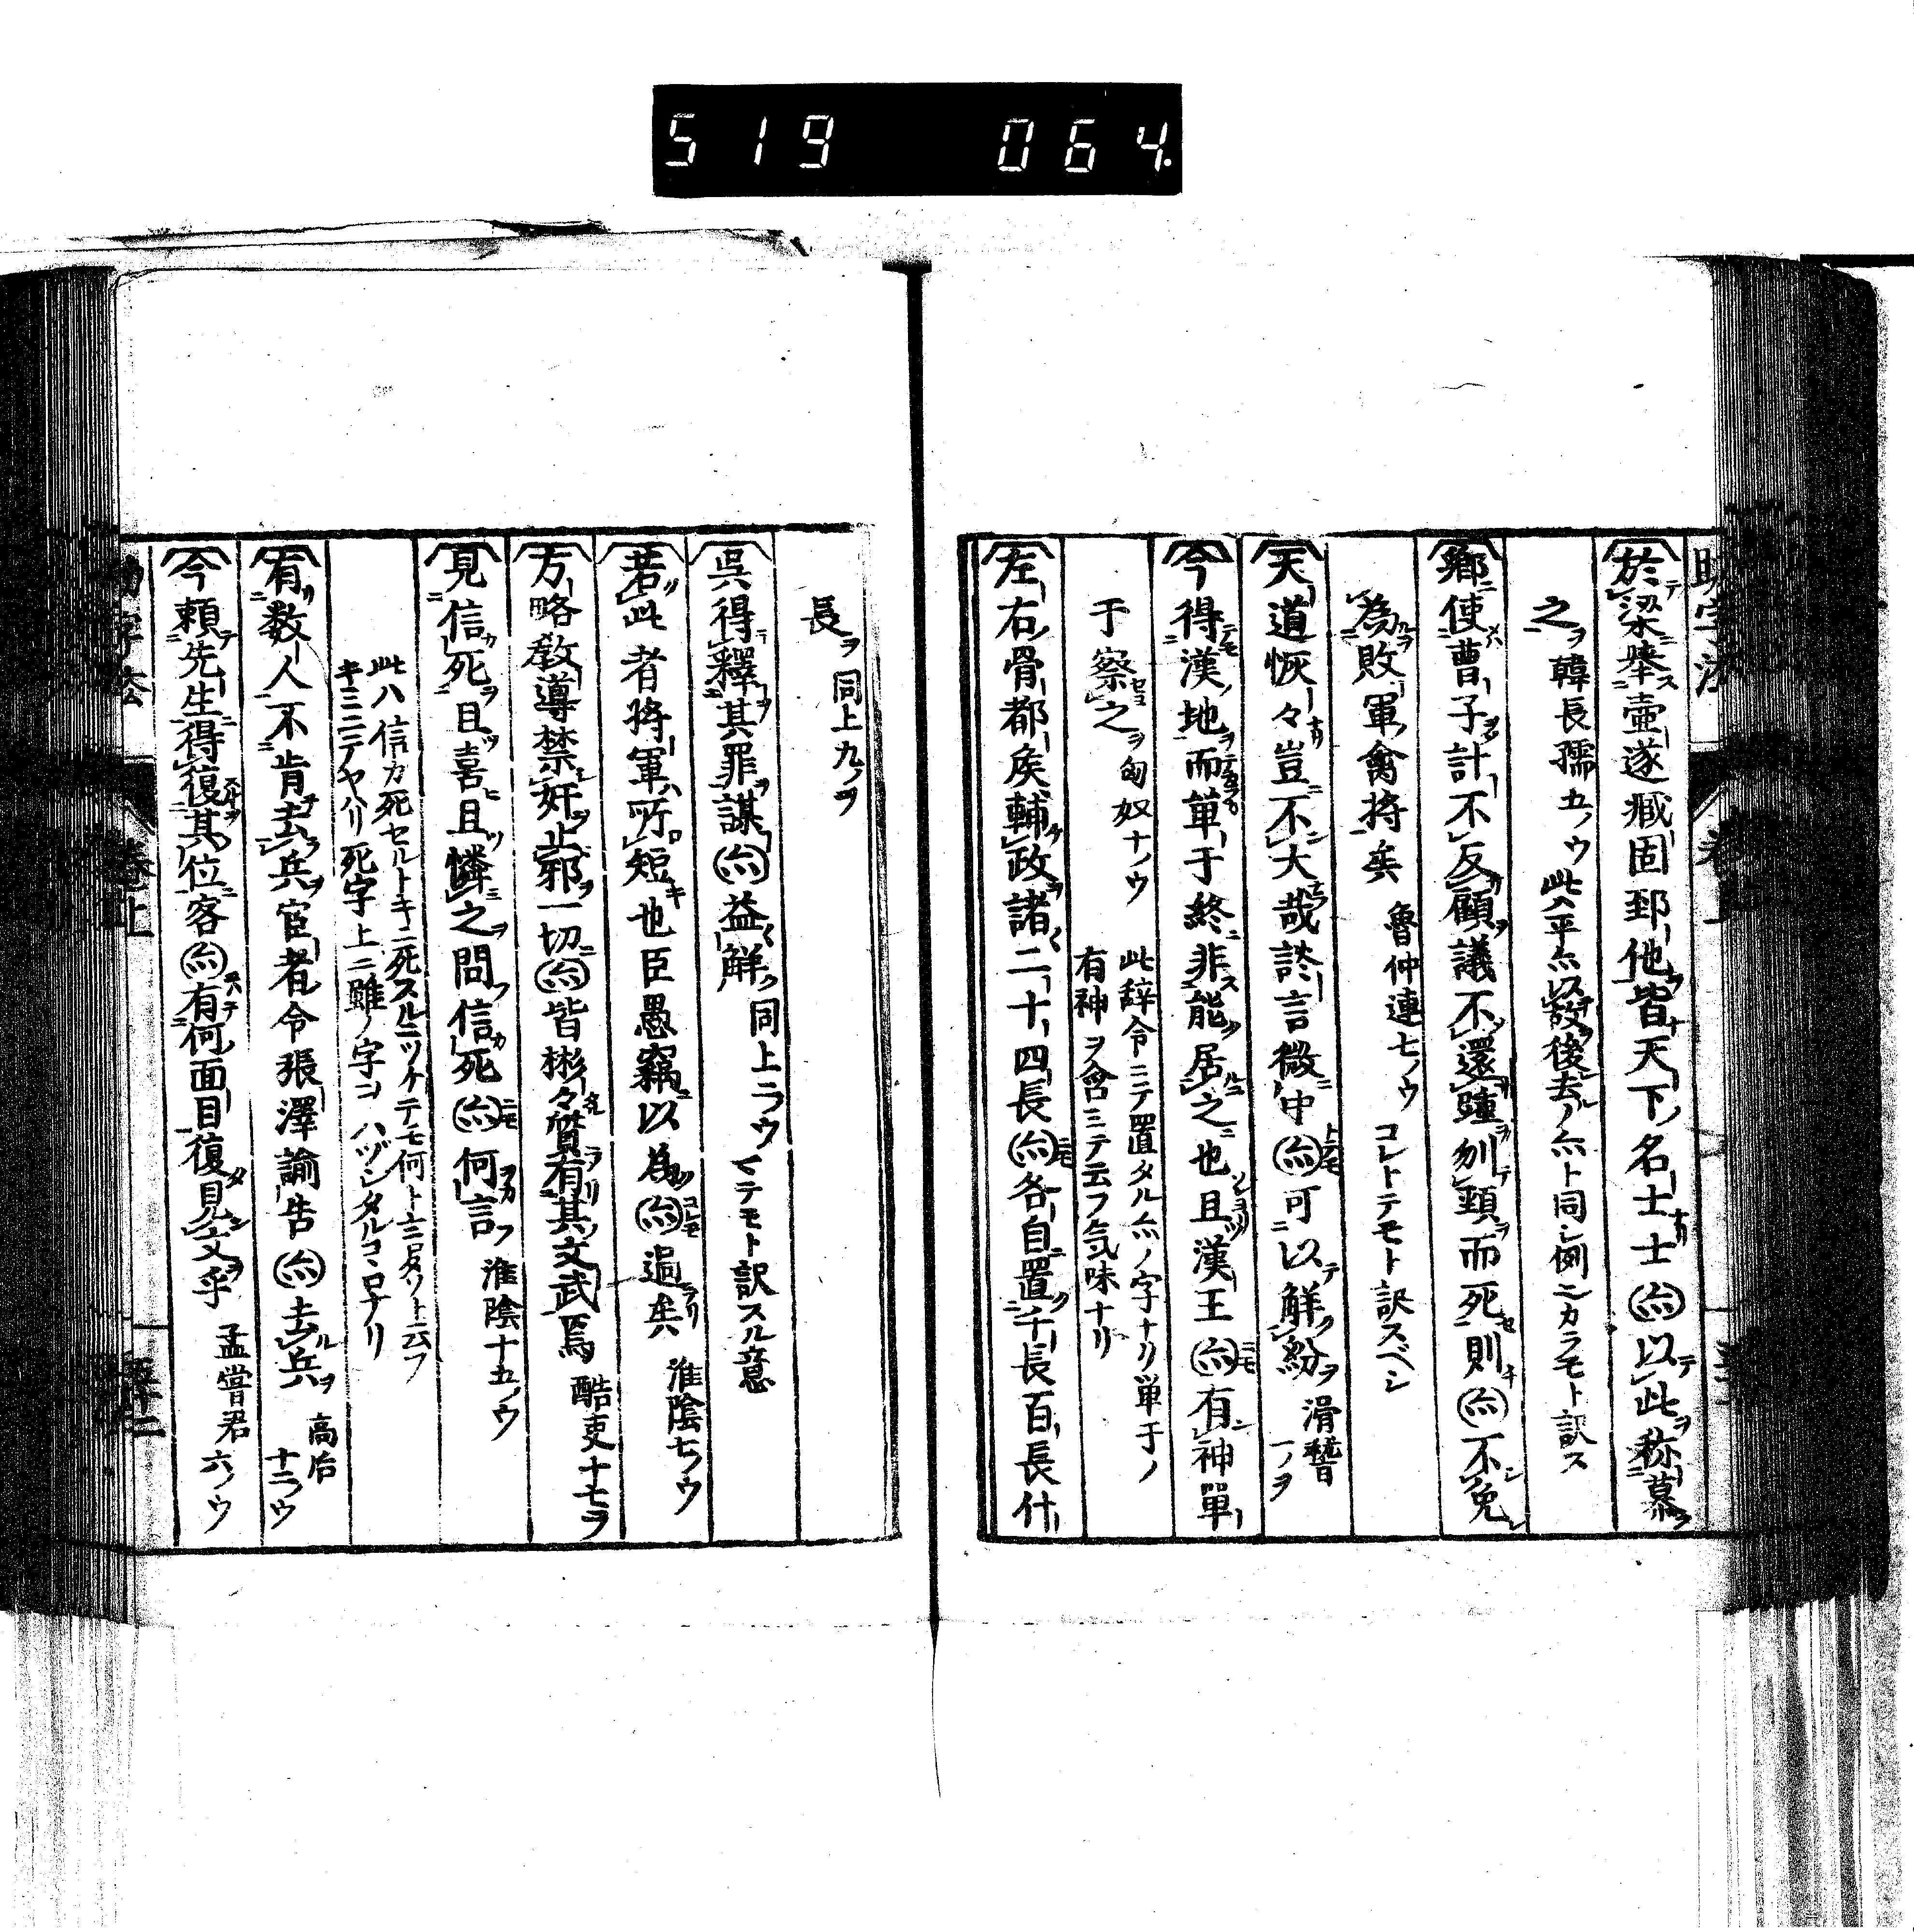 519 064.
於梁舉壺遂臧固郅他皆天下名士士亦以此称慕
之ヲ 韓長孺五ノウ 此ハ平亦以設後去ノ亦ト同シ例ニカラモト訳ス
鄉使曹子計不反顧議不還踵刎頚而死則亦不免
為敗軍禽将矣 魯仲連七ノウ コレトテモト訳スベシ
天道恢々豈不大哉談言微中亦可以解紛 滑稽一ノヲ
今得漢地而単于終非能居之也且漢王亦有神單
于察之ヲ 匈奴十ノウ 此辞令ニテ置タル亦ノ字ナリ単于ノ
有神ヲ含ミテ云フ気味ナリ
左右骨都矦輔政諸二十四長亦各自置千長百長什
長ヲ 同上九ノヲ
呉得釋其罪謀亦益解 同上ニノウ クテモト訳スル意
若此者将軍所短也臣愚竊以為亦過矣 淮陰七ノウ
方略教導禁奸止邪一切亦皆彬々質有其文武焉 酷吏十七ヲ
見信死且喜且憐之問信死亦何言 淮陰十五ノウ
此ハ信カ死セルトキニ死スルニツケテモ何ト言タリト云フ
キミニテヤハリ死字上ニ雖ノ字コハヅシタルコヽロナリ
有数人不肯去兵宦者令張澤諭告亦去兵 高后十二ウ
今頼先生得復其位客亦有何面目復見文乎 孟嘗君六ノウ